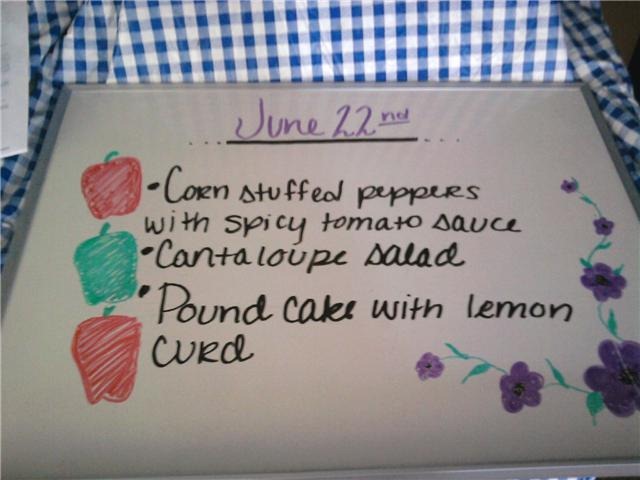 ...June 22nd...
•Corn stuffed peppers
with spicy tomato sauce
•Cantaloupe salad
•Pound cake with lemon
curd